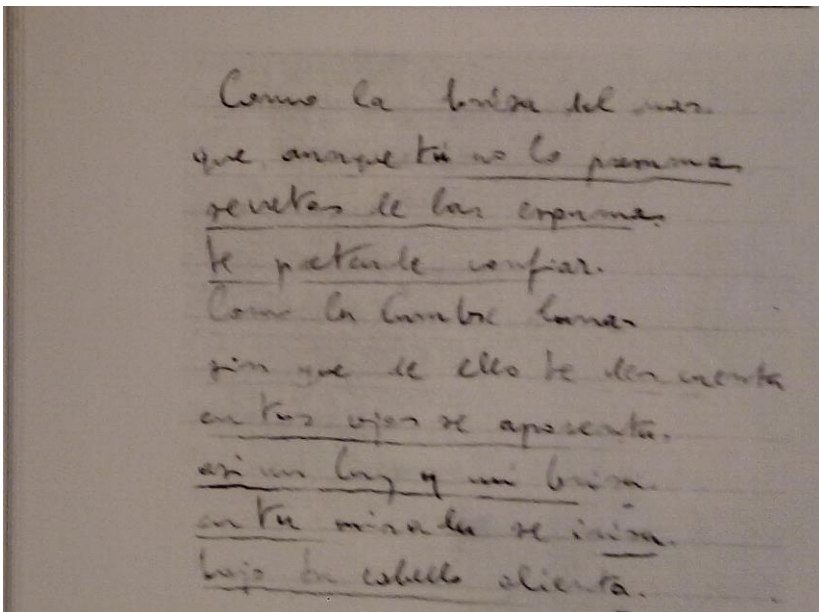 Como la brisa del mar
que aunque tú no lo presumas
secretos de las espumas
te pretende confiar.
Como la lumbre lunar
sin que de ello te des cuenta
en tus ojos se aposenta.
así mi luz y mi brisa
en tu mirada se irisa.
bajo tu cabello alienta.